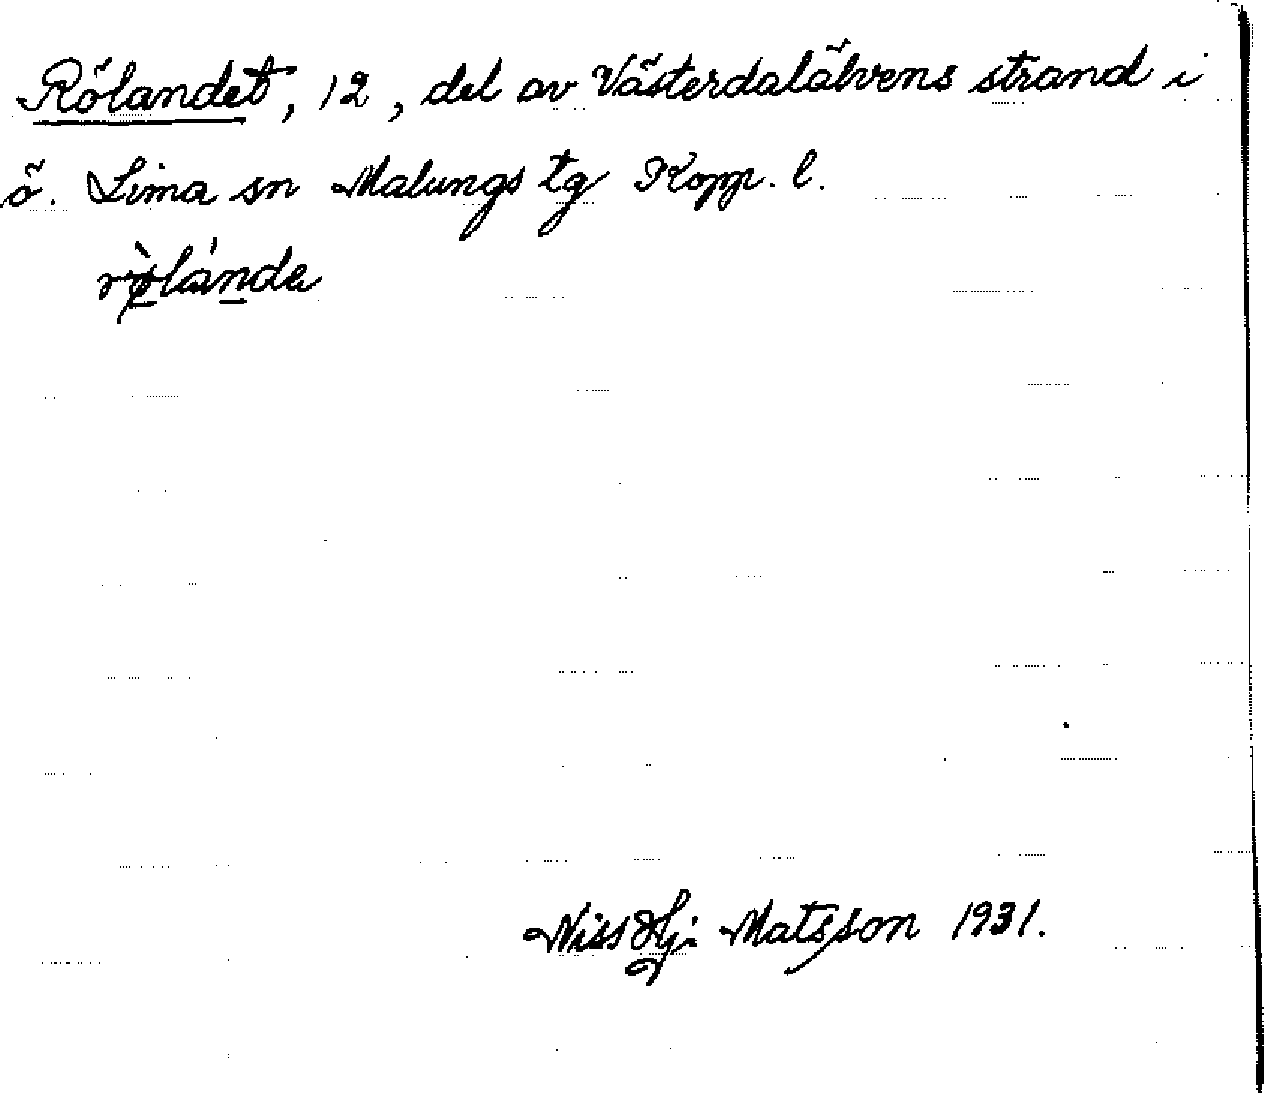 Rölandet, 12, del av Västerdalälvens strand i
ö. Lima sn Malungs tg Kopp. l.
rø̀lánda
Niss Hj. Matsson 1931.